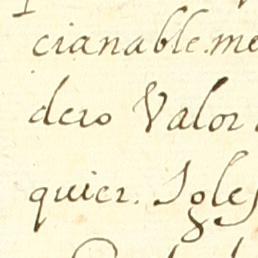 cianable.me
dero Valor
quier. Igles